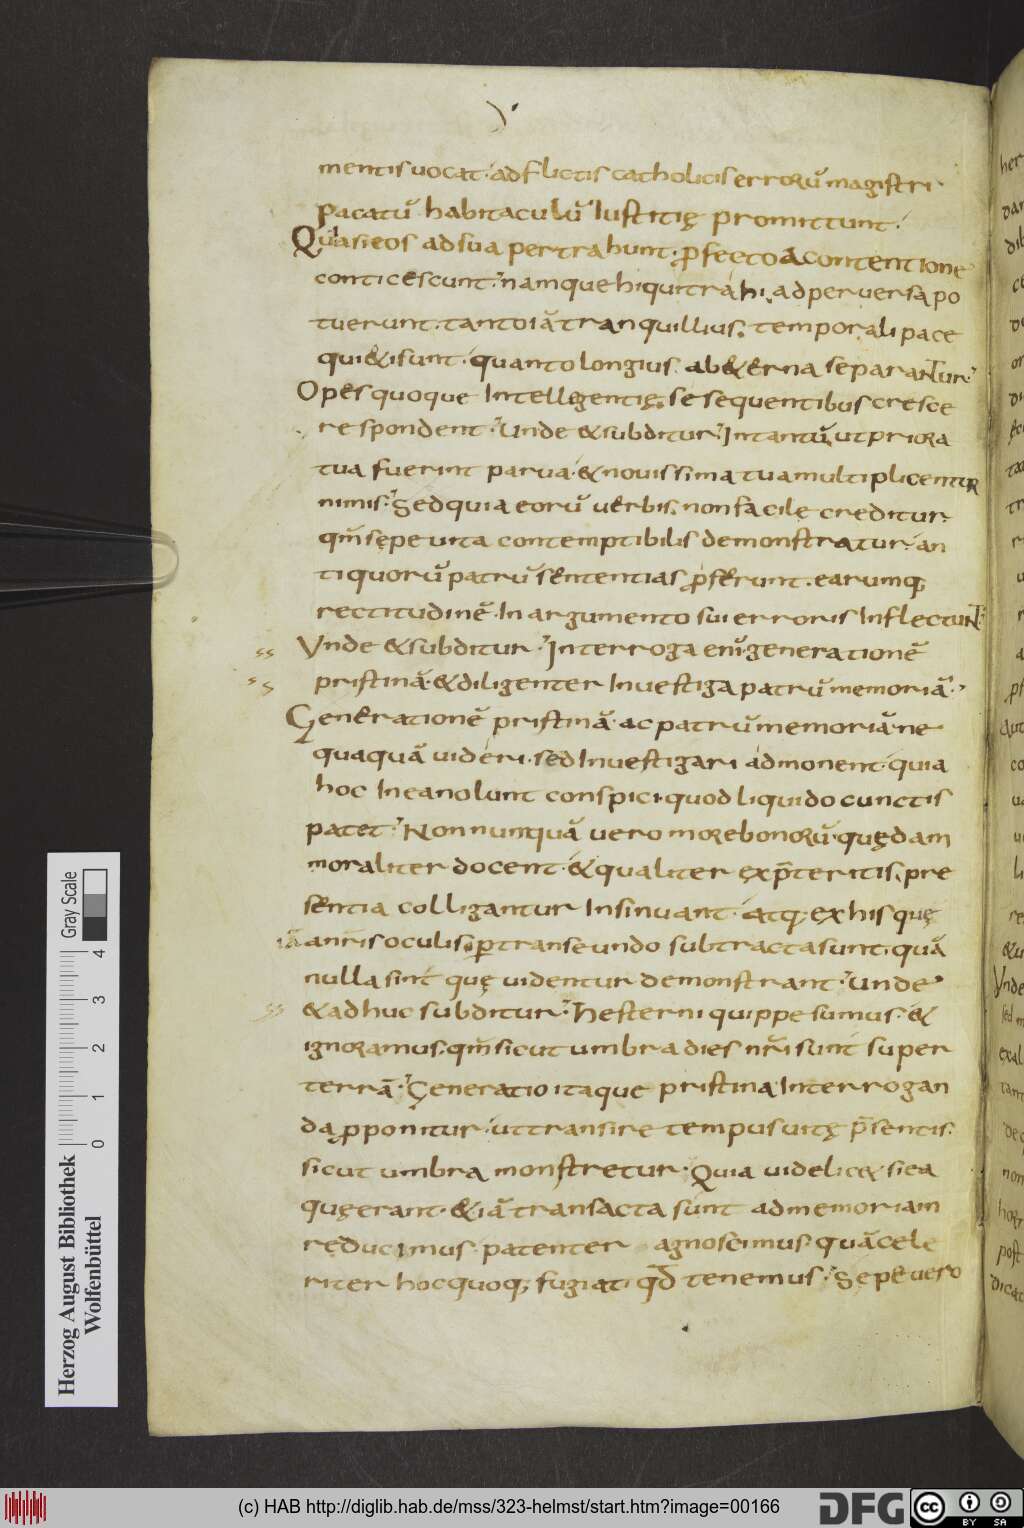 mentis uocat· adflictis catholicis errorũ magistri·
pacatũ· habitaculũ Iustitię promittunt·
Quasi eos ad sua pertrahunt· ꝓfecto a contentione
conticescunt· namque hi qui trahi· ad peruersa po
tuerunt· tanto iã tranquillius· temporali pace
qui&isunt· quanto longius ab &erna separantur·
Opes quoque Intellegentię· se sequentibus cresce
re spondent· Unde & subditur· In tantũ ut priora
tua fuerint parua· & nouissima tua multiplicentur
nimis· Sed quia eorũ uerbis non facile creditur·
qm̃ sępe uita contemptibilis demonstratur· an
tiquorũ patrũ sententias ꝓferunt· earumq;
rectitudinẽ· In argumento sui erroris Inflectunt·
Vnde & subditur· Interroga enĩ generationẽ
pristinã· & diligenter Inuestiga patrũ memoriã·
Generationẽ pristinã· ac patrũ memoriã ne
quaquã uideri· sed Inuestigari admonent· quia
hoc In ea nolunt conspici· quod liquido cunctis
patet· Non nunquã uero more bonorũ· quędam
moraliter docent· & qualiter ex p̃teritis pre
sentia colligantur Insinuant· atq; ex his quę
iã ante nr̃is oculis ꝑtranseundo subtracta sunt· quã
nulla sint quę uidentur demonstrant· Unde
& adhuc subditur· Hesterni quippe sumus· &
ignoramus· qm̃ sicut umbra dies nr̃i sunt super
terrã· Generatio itaque pristina Interrogan
da ꝓponitur· ut transire tempus uitę p̃sentis·
sicut umbra monstretur· Quia uidelic& si ea
quę erant· & iã transacta sunt ad memoriam
reducimus· patenter agnoscimus· quã cele
riter hoc quoq; fugiat· qđ tenemus· Sepe uero
Herzog August Bibliothek
Wolfenbüttel
Gray Scale
0 1 2 3 4
(c) HAB http://diglib.hab.de/mss/323-helmst/start.htm?image=00166
DFG
cc BY SA